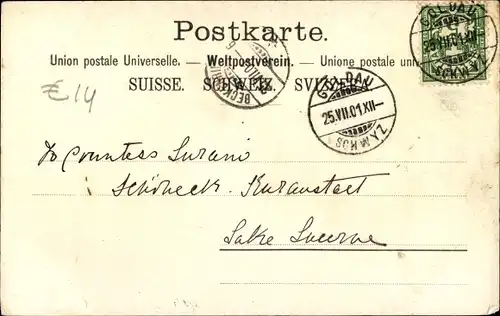 Postkarte.
Union postale Universelle. – Weltpostverein. – Unione postale
SUISSE. SCHWEIZ. SVIZZERA
GOLDAU
25.VII.01.XII–
SCHWYZ
GOLDAU
25.VII.01.XII
SCHWYZ
£14
To Countess
Schöneck Kuranstalt
Lake Lucerne